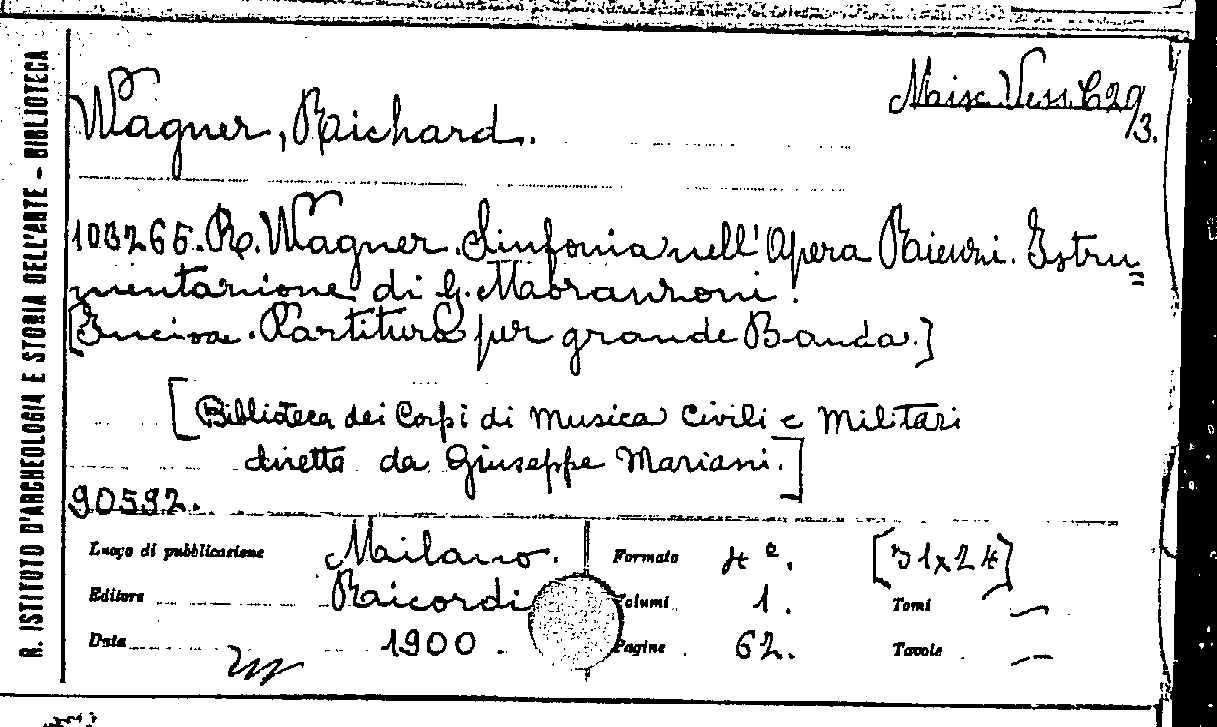 R. ISTITUTO D'ARCHEOLOGIA E STORIA DELL'ARTE - BIBLIOTECA
Misc. Vess. C29/3.
Wagner, Richard.
103265. R. Wagner. Sinfonia nell'Opera Rienzi. Istru=
mentazione di G. Moranzoni.
[Incisa. Partitura per grande Banda.]
[Biblioteca dei Corpi di Musica Civili e Militari
diretta da Giuseppe Mariani.]
90592.
Luogo di pubblicazione Milano. Formato 4º. [31x24]
Editore Ricordi Volumi 1. Tomi —
Data 1900. Pagine 62. Tavole —